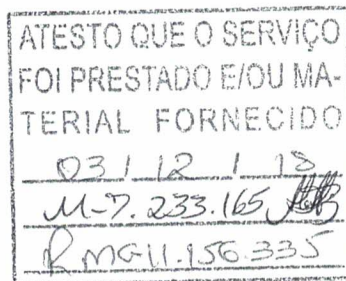 ATESTO QUE O SERVIÇO
FOI PRESTADO E/OU MA-
TERIAL FORNECIDO
03 / 12 / 18
M-7.233.165
MG-11.156.335